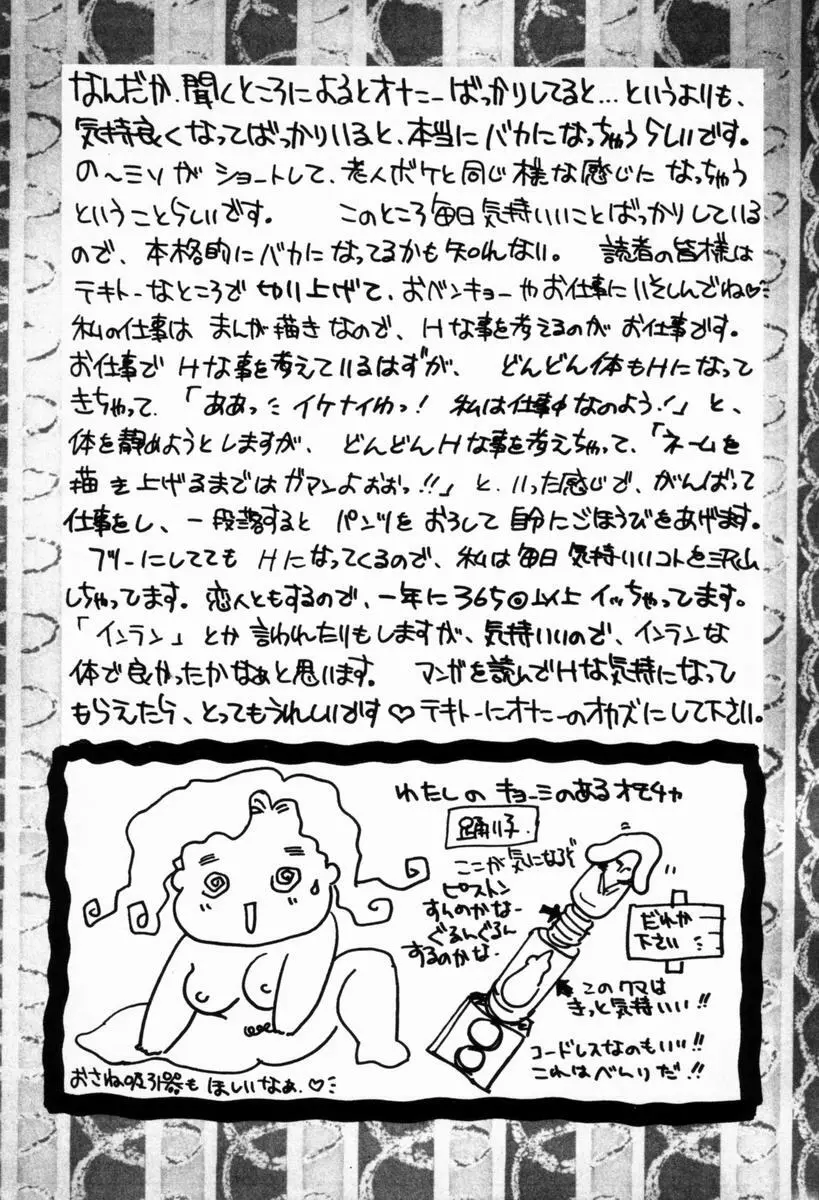 なんだか、聞くところによるとオナニーばっかりしてると…というよりも、
気持良くなってばっかりいると、本当にバカになっちゃうらしいです。
の〜ミソがショートして、老人ボケと同じ様な感じになっちゃう
ということらしいです。 このところ毎日気持いいことばっかりしている
ので、本格的にバカになってるかも知れない。 読者の皆様は
テキトーなところで切り上げて、おベンキョーやお仕事にいそしんでね♡
私の仕事はまんが描きなので、Hな事を考えるのがお仕事です。
お仕事でHな事を考えているはずが、 どんどん体もHになって
きちゃって、「ああっイケナイわっ!私は仕事中なのよう!」と、
体を静めようとしますが、どんどんHな事を考えちゃって、「ネームを
描き上げるまではガマンよおおっ!!」と、いった感じで、がんばって
仕事をし、一段落するとパンツをおろして自分にごほうびをあげます。
フツーにしててもHになってくるので、私は毎日気持いいコトを沢山
しちゃってます。恋人ともするので、一年に365回以上イッちゃってます。
「インラン」とか言われたりもしますが、気持いいので、インランな
体で良かったかなぁと思います。 マンガを読んでHな気持になって
もらえたら、とってもうれしいです♡テキトーにオナニーのオカズにして下さい。
わたしのキョーミのあるオモチャ
踊り子
ここが気になるぞ
ピストン
すんのかなー
ぐるんぐるん
するのかな
だれか
下さい
このクマは
きっと気持いい!!
コードレスなのもいい!!
これはべんりだ!!
おさね吸引器もほしいなぁ。♡